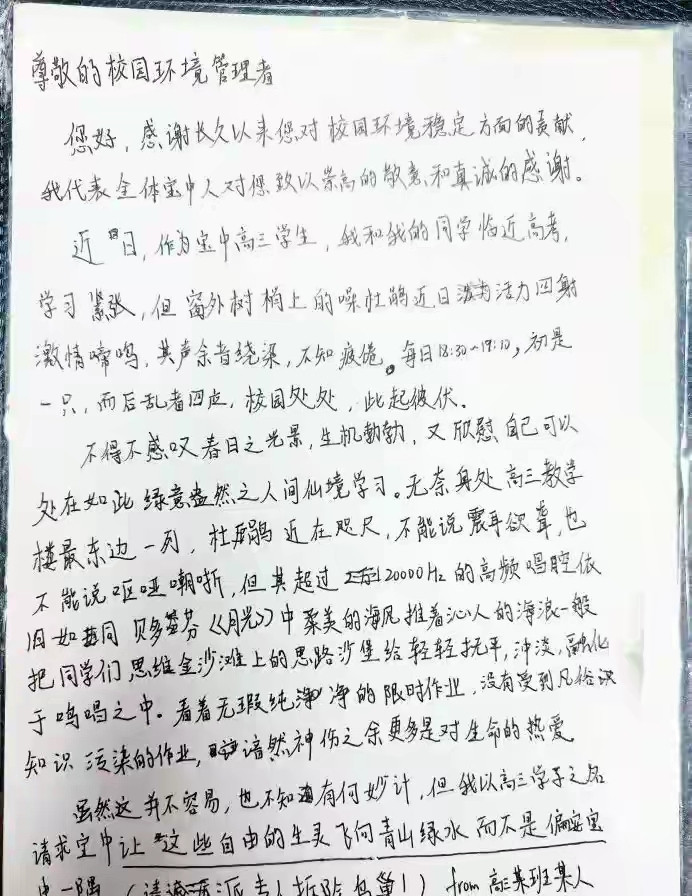 尊敬的校园环境管理者
您好，感谢长久以来您对校园环境稳定方面的贡献，
我代表全体宝中人对您致以崇高的敬意和真诚的感谢。
近日，作为宝中高三学生，我和我的同学临近高考，
学习紧张，但窗外树梢上的噪杜鹃近日活力四射
激情啼鸣，其声余音绕梁，不知疲倦。每日18:30~19:10，初是
一只，而后乱者四应，校园处处，此起彼伏。
不得不感叹春日之光景，生机勃勃，又欣慰自己可以
处在如此绿意盎然之人间仙境学习。无奈身处高三教学
楼最东边一列，杜鹃近在咫尺，不能说震耳欲聋，也
不能说呕哑嘲哳，但其超过20000Hz的高频唱腔依
旧如同贝多芬《月光》中柔美的海风推着沁人的海浪一般
把同学们思维金沙滩上的思路沙堡给轻轻抚平，冲淡，融化
于鸣唱之中。看着无瑕纯净的限时作业，没有受到凡俗
知识污染的作业，谙然神伤之余更多是对生命的热爱
虽然这并不容易，也不知有何妙计，但我以高三学子之名
请求宝中让这些自由的生灵飞向青山绿水而不是偏安宝
中一隅（请 派专人拆除鸟巢！） from高三某班某人